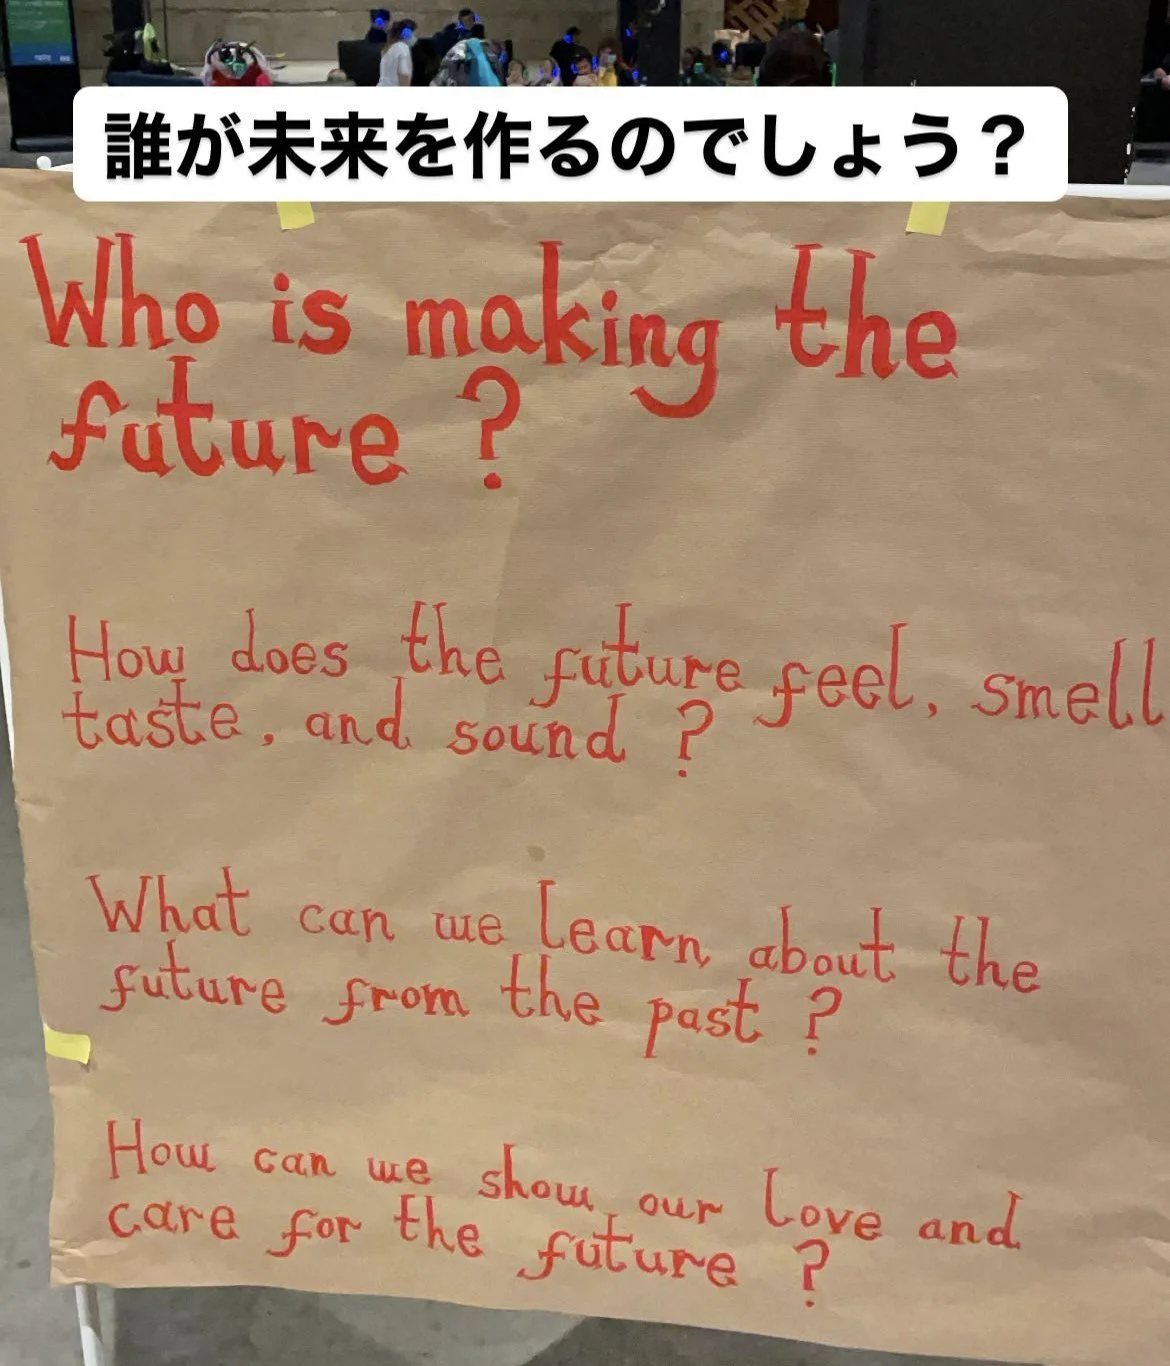 誰が未来を作るのでしょう？
Who is making the
future ?
How does the future feel, smell
taste, and sound ?
What can we learn about the
future from the past ?
How can we show our love and
care for the future ?